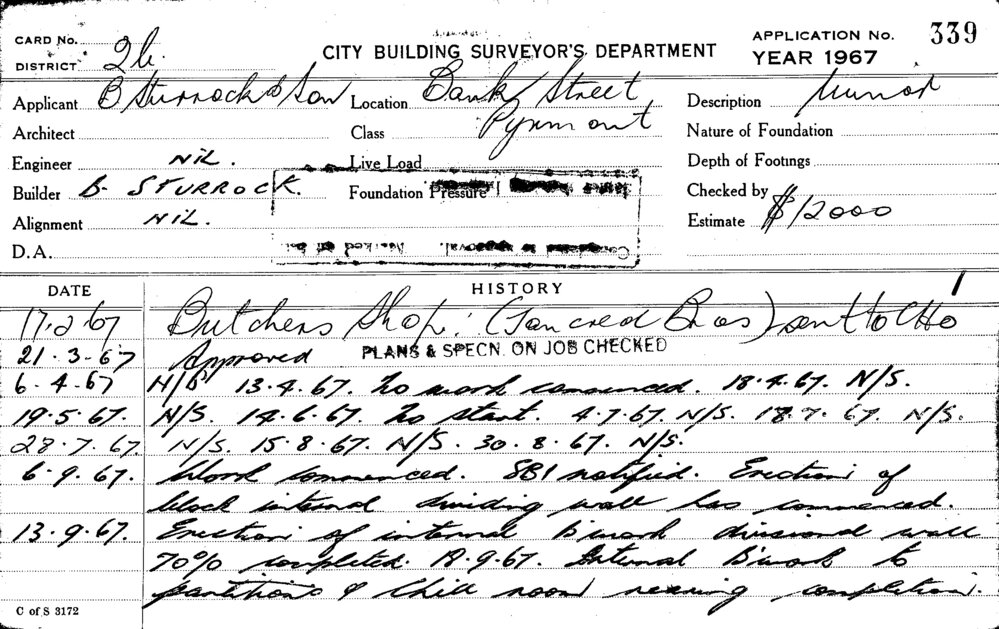 CARD No.
DISTRICT 26.
CITY BUILDING SURVEYOR'S DEPARTMENT
APPLICATION No. 339
YEAR 1967
Applicant B Sturrock & Son Location Bank Street Description Minor
Architect Class Pyrmont Nature of Foundation
Engineer NIL. Live Load Depth of Footings
Builder B. STURROCK. Foundation Pressure Checked by
Alignment NIL. Estimate $12000
D.A.
DATE HISTORY
17.2.67 Butchers Shop. (Tancred Bros) sent to CHO
21.3.67 Approved PLANS & SPECN. ON JOB CHECKED
6.4.67 N/S 13.4.67. No work commenced. 18.4.67. N/S.
19.5.67. N/S. 14.6.67. No start. 4.7.67. N/S. 18.7.67. N/S.
28.7.67 N/S. 15.8.67. N/S. 30.8.67. N/S.
6.9.67. Work commenced. SBI notified. Erection of
block internal dividing wall has commenced.
13.9.67. Erection of internal B'work divisional wall
70% completed. 18.9.67. Internal B'work to
partitions & Chill room nearing completion.
C of S 3172